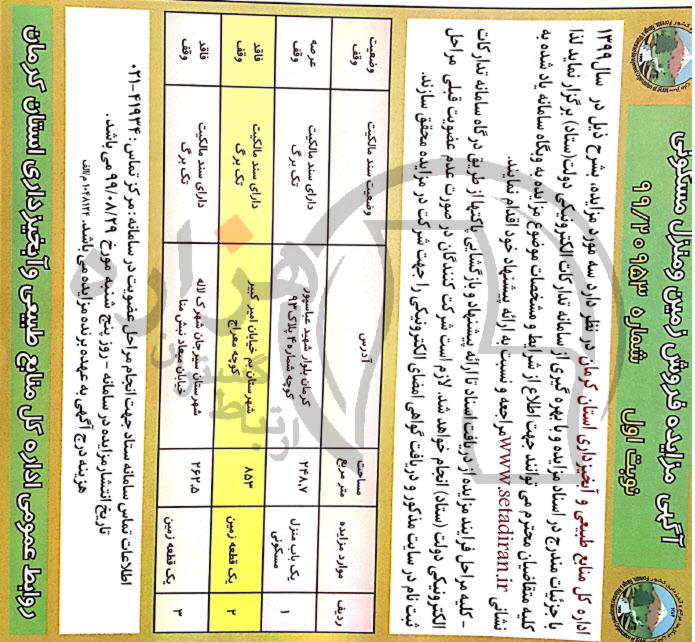 آگهی مزایده فروش زمین ومنزل مسکونی
شماره ۹۹/۲۰۹۵۳ نوبت اول
اداره کل منابع طبیعی و آبخیزداری استان کرمان در نظر دارد سه مورد مزایده، بشرح ذیل در سال۱۳۹۹
با جزئیات مندرج در اسناد مزایده و با بهره گیری از سامانه تدارکات الکترونیکی دولت(ستاد) برگزار نماید لذا
کلیه متقاضیان محترم می توانند جهت اطلاع از شرایط و مشخصات موضوع مزایده به وبگاه سامانه یاد شده به
نشانی www.setadiran.ir مراجعه و نسبت به ارائه پیشنهاد خود اقدام نمایند.
- کلیه مراحل فرایند مزایده از دریافت اسناد تا ارائه پیشنهاد و بازگشایی پاکتها از طریق درگاه سامانه تدارکات
الکترونیکی دولت (ستاد) انجام خواهد شد. لازم است شرکت کنندگان در صورت عدم عضویت قبلی مراحل
ثبت نام در سایت مذکور و دریافت گواهی امضای الکترونیکی را جهت شرکت در مزایده محقق سازند.
ردیف موارد مزایده مساحت متر مربع آدرس وضعیت سند مالکیت وضعیت وقف
۱ یک باب منزل مسکونی ۲۴۸.۷ کرمان بلوار شهید عباسپور کوچه شماره۴ پلاک ۹۳ دارای سند مالکیت تک برگ عرصه وقف
۲ یک قطعه زمین ۸۵۳ شهرستان بم خیابان امیر کبیر کوچه معراج دارای سند مالکیت تک برگ فاقد وقف
۳ یک قطعه زمین ۲۶۲.۵ شهرستان سیرجان شهرک لاله خیابان میعاد نبش مینا دارای سند مالکیت تک برگ فاقد وقف
اطلاعات تماس سامانه ستاد جهت انجام مراحل عضویت در سامانه: مرکز تماس: ۴۱۹۳۴-۰۲۱
تاریخ انتشار مزایده در سامانه - روز پنج شنبه مورخ ۹۹/۰۸/۲۹ می باشد.
هزینه درج آگهی به عهده برنده مزایده می باشد. ۱۰۴۸۱۲۴ م/الف
روابط عمومی اداره کل منابع طبیعی وآبخیزداری استان کرمان
هزاره
گستران
ارتباط